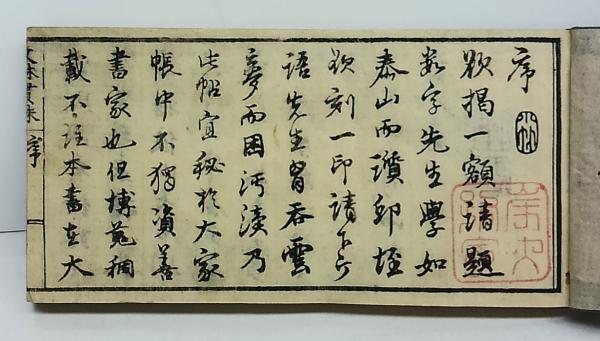 序
欲揭一額請題
数字先生學如
泰山而瓚邱垤
欲刻一印請下一
語先生胷吞雲
夢而困沔漬乃
此帖宜秘於大家
帳中不獨資善
書家也但博苑稠
載不註本書在大
序